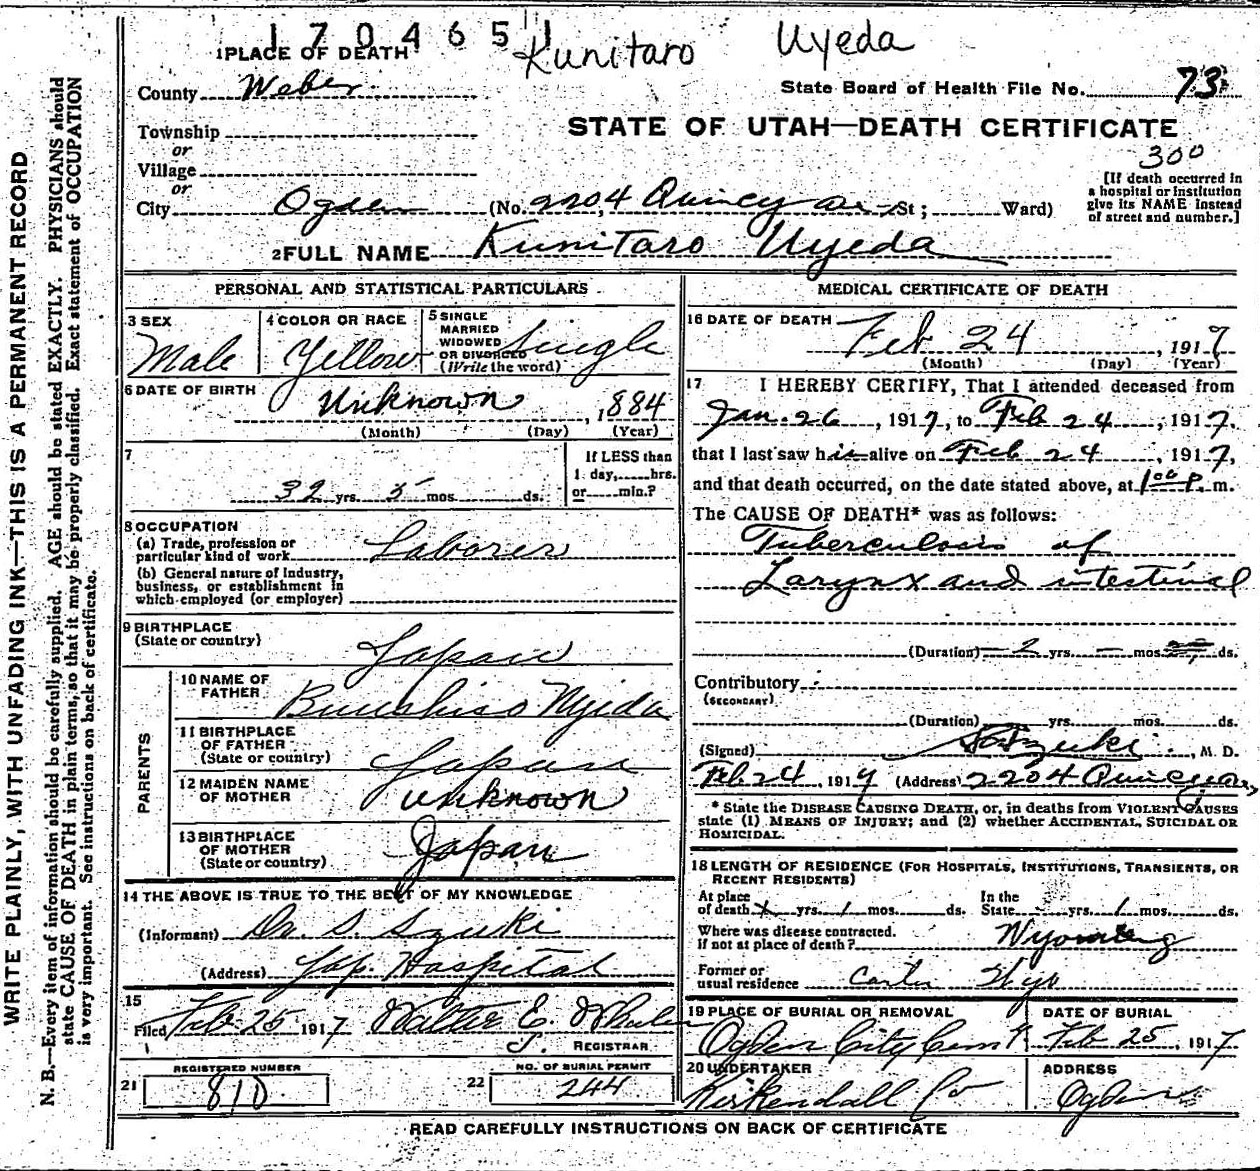 1 7 0 4 6 5 1
Kunitaro Uyeda
1 PLACE OF DEATH
County Weber
State Board of Health File No. 73
STATE OF UTAH—DEATH CERTIFICATE
300
Township
or
Village
or
City Ogden (No. 2204 Quincy av St; Ward)
[If death occurred in
a hospital or institution
give its NAME instead
of street and number.]
2 FULL NAME Kunitaro Uyeda
PERSONAL AND STATISTICAL PARTICULARS
3 SEX
Male
4 COLOR OR RACE
Yellow
5 SINGLE
MARRIED
WIDOWED
OR DIVORCED
(Write the word)
Single
6 DATE OF BIRTH
Unknown, 1884
(Month) (Day) (Year)
7
32 yrs. 5 mos. ds.
If LESS than
1 day, hrs.
or min.?
8 OCCUPATION
(a) Trade, profession or
particular kind of work Laborer
(b) General nature of Industry,
business, or establishment in
which employed (or employer)
9 BIRTHPLACE
(State or country)
Japan
PARENTS
10 NAME OF
FATHER
11 BIRTHPLACE
OF FATHER
(State or country)
Japan
12 MAIDEN NAME
OF MOTHER
unknown
13 BIRTHPLACE
OF MOTHER
(State or country)
Japan
14 THE ABOVE IS TRUE TO THE BEST OF MY KNOWLEDGE
(Informant) Dr. S. Szuki
(Address) Jap. Hospital
15
Filed Feb 25 1917 Walter E.
REGISTRAR
REGISTERED NUMBER
21 810
NO. OF BURIAL PERMIT
22 244
MEDICAL CERTIFICATE OF DEATH
16 DATE OF DEATH
Feb 24, 1917
(Month) (Day) (Year)
17 I HEREBY CERTIFY, That I attended deceased from
Jan. 26, 1917, to Feb 24, 1917,
that I last saw h is alive on Feb 24, 1917,
and that death occurred, on the date stated above, at 1 00 P. m.
The CAUSE OF DEATH* was as follows:
Tuberculosis of
Larynx and intestinal
(Duration) 2 yrs. – mos. ds.
Contributory
(SECONDARY)
(Duration) yrs. mos. ds.
(Signed) Szuki, M. D.
Feb 24, 1917 (Address) 2204 Quincy av,
* State the DISEASE CAUSING DEATH, or, in deaths from VIOLENT CAUSES
state (1) MEANS OF INJURY; and (2) whether ACCIDENTAL, SUICIDAL OR
HOMICIDAL.
18 LENGTH OF RESIDENCE (FOR HOSPITALS, INSTITUTIONS, TRANSIENTS, OR
RECENT RESIDENTS)
At place
of death x yrs. 1 mos. ds.
In the
State - yrs. 1 mos. ds.
Where was disease contracted.
if not at place of death? Wyoming
Former or
usual residence Carter Wyo
19 PLACE OF BURIAL OR REMOVAL
Ogden City Cem
DATE OF BURIAL
Feb 25, 1917
20 UNDERTAKER
Kirkendall Co
ADDRESS
Ogden
READ CAREFULLY INSTRUCTIONS ON BACK OF CERTIFICATE
WRITE PLAINLY, WITH UNFADING INK—THIS IS A PERMANENT RECORD
N. B.—Every item of information should be carefully supplied. AGE should be stated EXACTLY. PHYSICIANS should
state CAUSE OF DEATH in plain terms, so that it may be properly classified. Exact statement of OCCUPATION
is very important. See instructions on back of certificate.